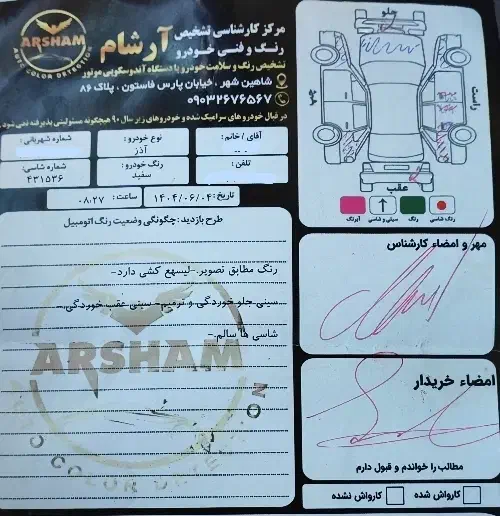 ARSHAM
AUTO COLOR DETECTION
مرکز کارشناسی تشخیص
رنگ و فنی خودرو
آرشام
تشخیص رنگ و سلامت خودرو با دستگاه آندوسکوپی موتور
شاهین شهر ، خیابان پارس فاستون ، پلاک ۸۶
۰۹۰۳۲۶۷۶۵۶۷
در قبال خودرو های سرامیک شده و خودروهای زیر سال ۹۰ هیچگونه مسئولیتی پذیرفته نمی شود
آقای / خانم :
نوع خودرو :
آذز
شماره شهربانی :
تلفن :
رنگ خودرو :
سفید
شماره شاسی :
۴۳۱۵۳۶
تاریخ: ۱۴۰۴/۰۶/۰۴
ساعت : ۰۸:۲۷
طرح بازدید: چگونگی وضعیت رنگ اتومبیل
رنگ مطابق تصویر.-لیسهع کشی دارد-
سینی جلو خوردگی و ترمیم- سینی عقب خوردگی.-
شاسی ها سالم.-
ARSHAM
جلو
راست
چپ
عقب
رنگ شاسی
رنگ
سینی و شاسی
آبرنگ
مهر و امضاء کارشناس
امضاء خریدار
مطالب را خواندم و قبول دارم
کارواش شده
کارواش نشده